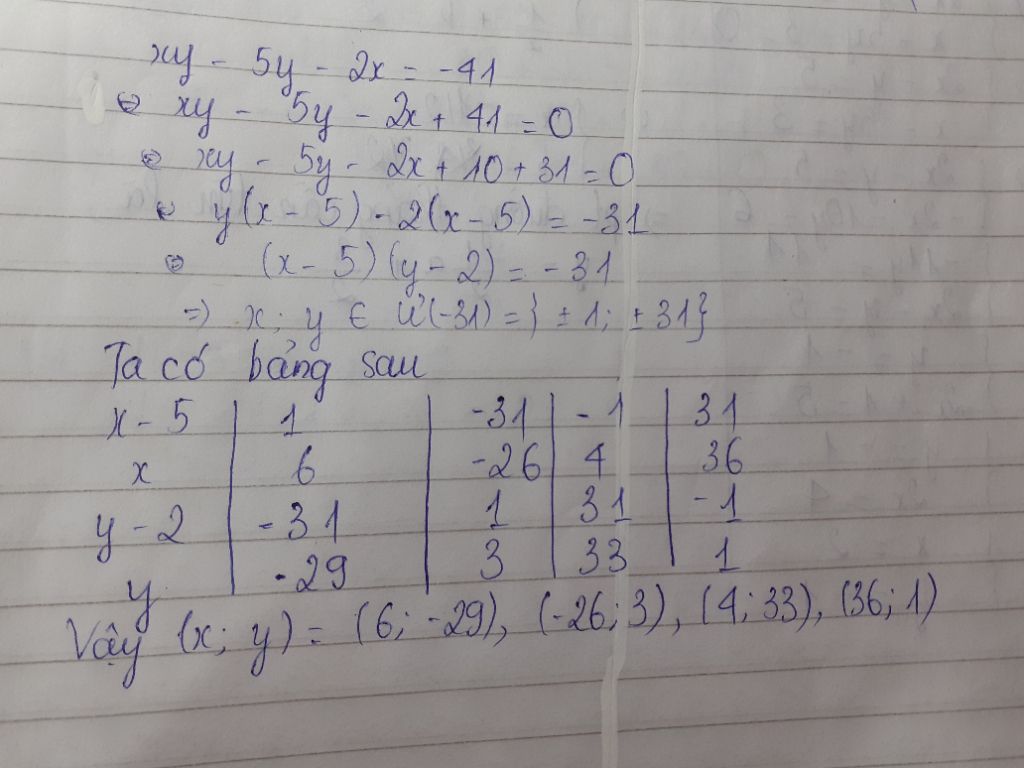 xy - 5y - 2x = -41
⇔ xy - 5y - 2x + 41 = 0
⇔ xy - 5y - 2x + 10 + 31 = 0
⇔ y(x - 5) - 2(x - 5) = -31
⇔ (x - 5)(y - 2) = -31
⇒ x; y ∈ Ư(-31) = } ±1; ±31}
Ta có bảng sau
x - 5 | 1 | -31 | -1 | 31
x | 6 | -26 | 4 | 36
y - 2 | -31 | 1 | 31 | -1
y | -29 | 3 | 33 | 1
Vậy (x; y) = (6; -29), (-26; 3), (4; 33), (36; 1)